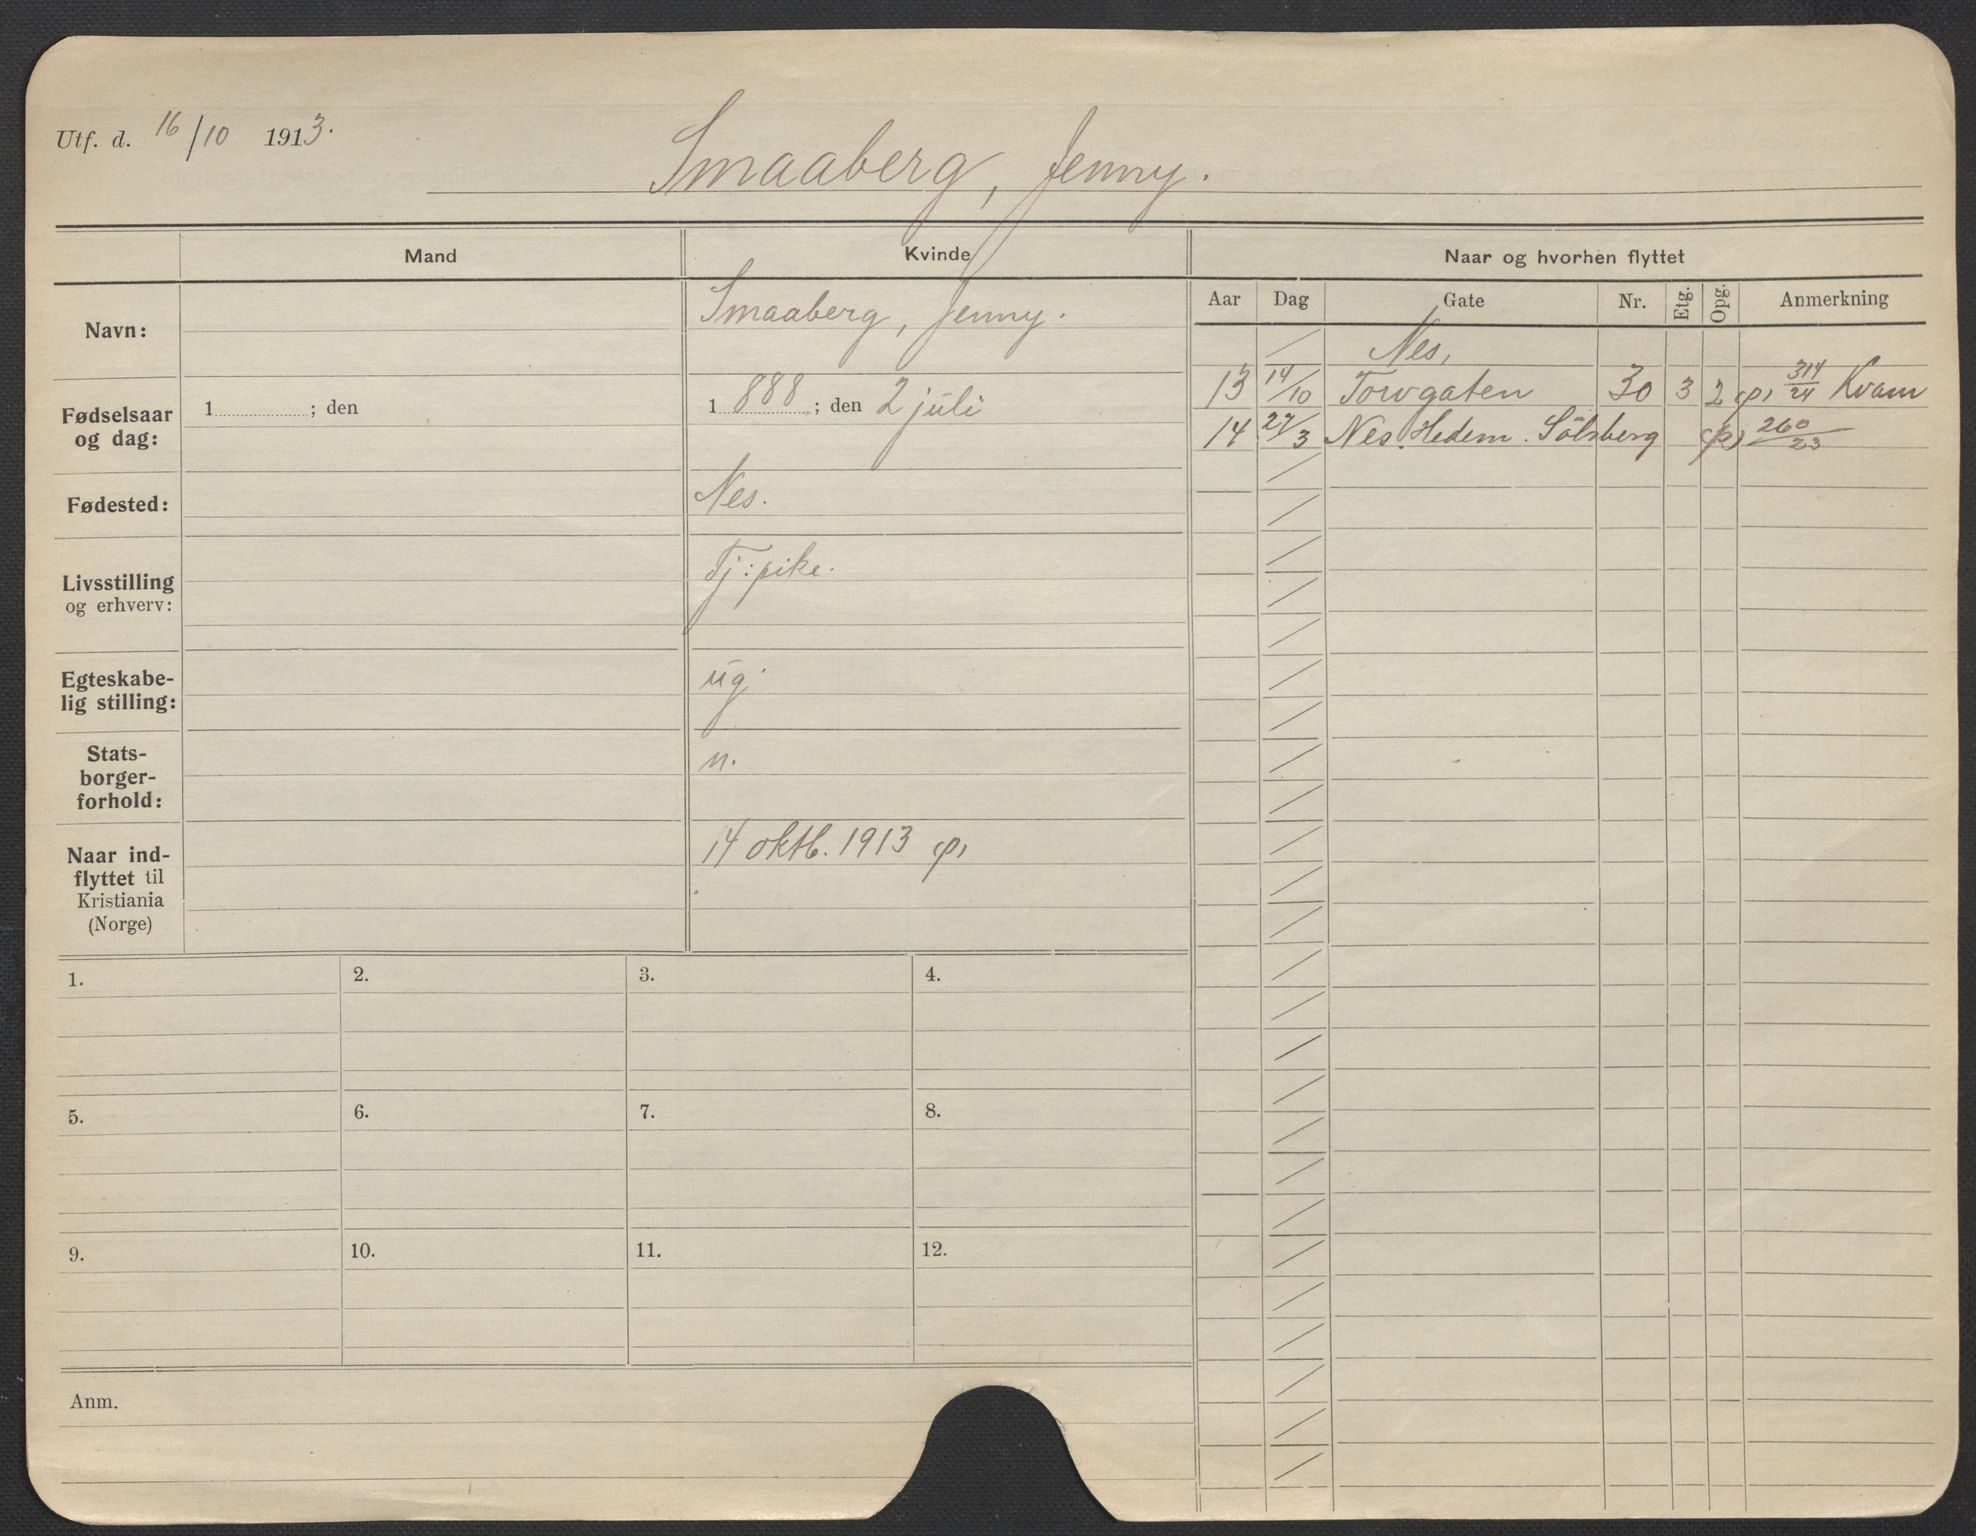 Utf. d. 16/10 1913.
Smaaberg, Jenny.
Mand
Kvinde
Naar og hvorhen flyttet
Navn:
Smaaberg, Jenny.
Fødselsaar og dag:
1 ; den
1 888 ; den 2 juli
Fødested:
Nes.
Livsstilling og erhverv:
Tj: pike.
Egteskabe-
lig stilling:
ug.
Stats-
borger-
forhold:
n.
Naar ind-
flyttet til
Kristiania
(Norge)
14 oktb. 1913 (p)
1. 2. 3. 4.
5. 6. 7. 8.
9. 10. 11. 12.
Anm.
Aar Dag Gate Nr. Etg. Opg. Anmerkning
Nes,
13 14/10 Torvgaten 30 3 2 (p) 314/24 Kvam
14 27/3 Nes. Hedem. Sölsberg (p) 260/23